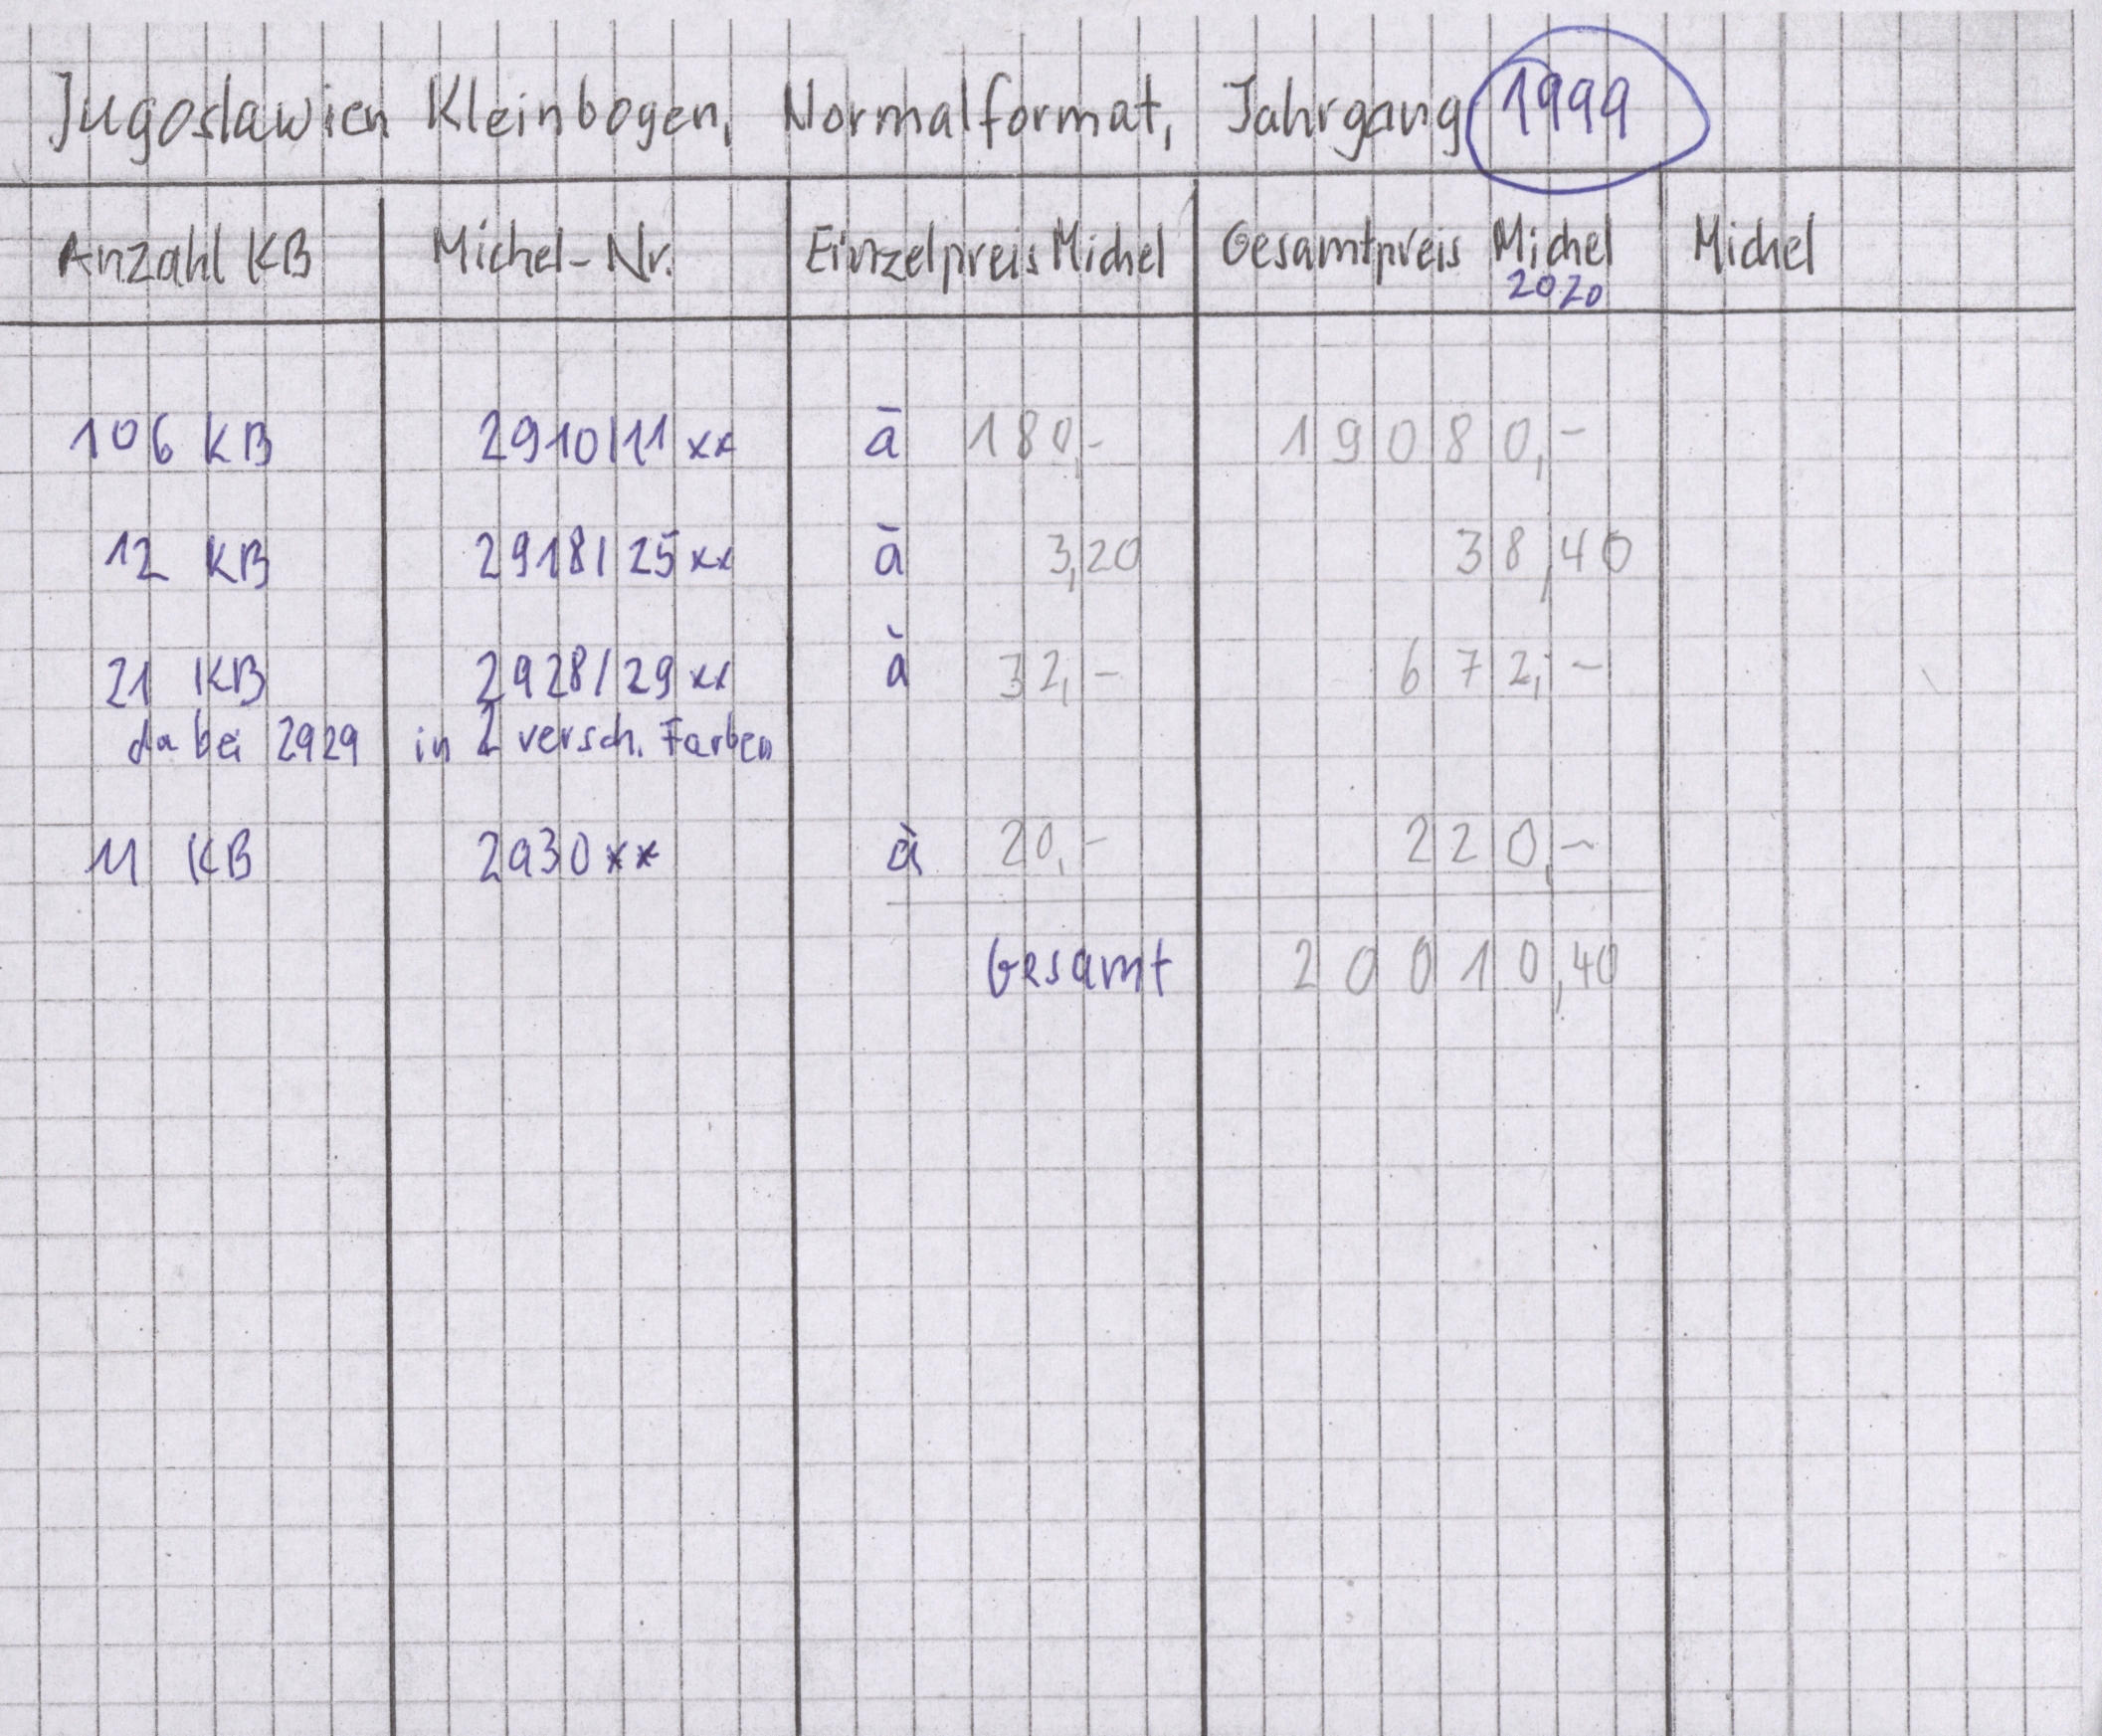 Jugoslawien Kleinbogen, Normalformat, Jahrgang 1999
Anzahl KB Michel-Nr. Einzelpreis Michel Gesamtpreis Michel 2020 Michel
106 KB 2910/11 xx à 180,- 19080,-
12 KB 2918/25 xx à 3,20 38,40
21 KB 2928/29 xx à 32,- 672,-
dabei 2929 in 2 versch. Farben
11 KB 2930 xx à 20,- 220,-
Gesamt 20010,40